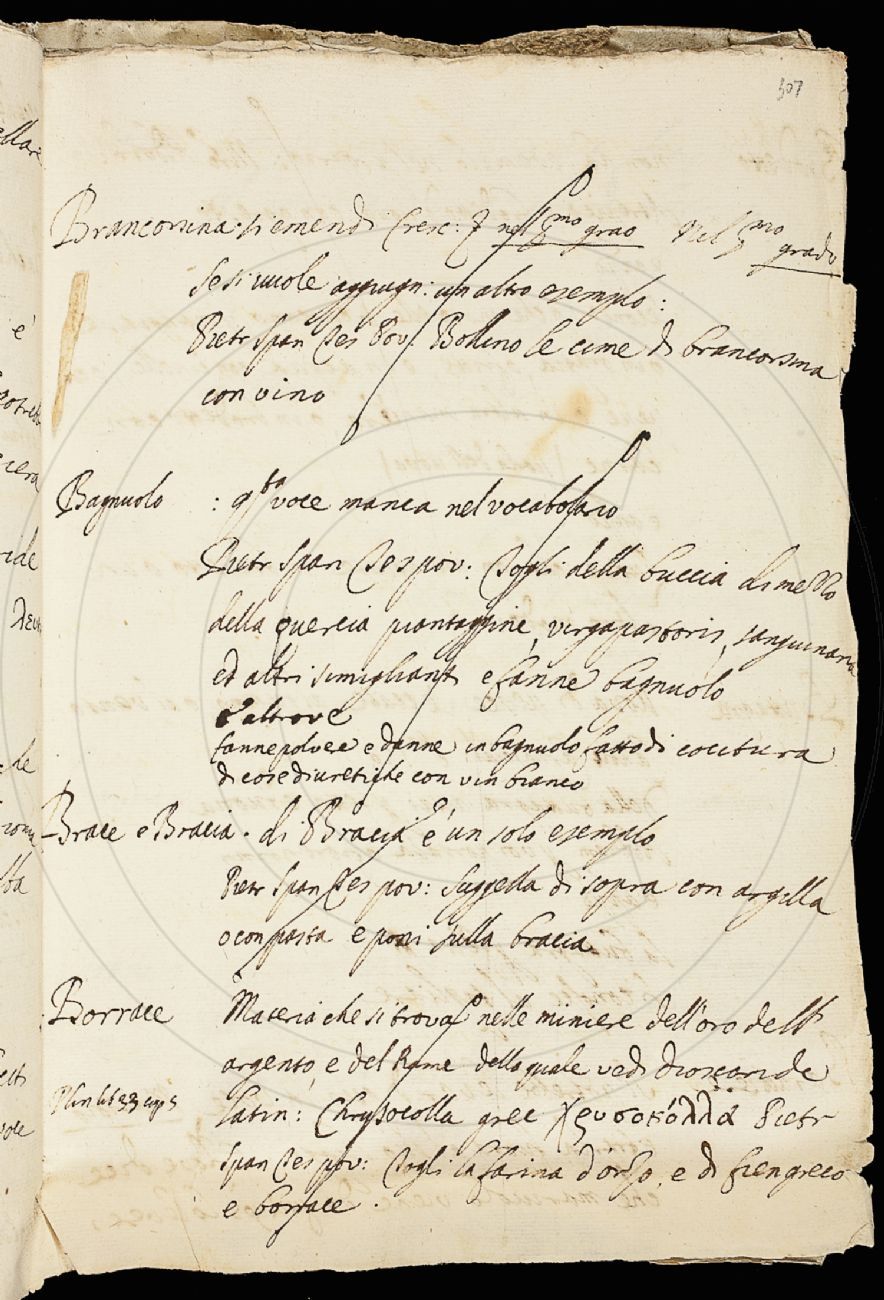 307
Brancorsina: si emendi Cresc: 7 nel 3mo grao Nel 3mo grado
se si vuole aggiugn: un altro esempio:
Pietr Span Tes Pov: Bollino le cime di brancorsina
con vino
Bagnuolo : qsta voce manca nel vocabolario
Pietr Span Tes pov: Togli della buccia di mezzo
della quercia piantaggine, virgapastoris, sanguinaria
ed altri simiglianti e fanne bagnuolo
E altrove
fanne polvere e danne in bagnuolo fatto di cocitura
di cose diuretiche con vin bianco
Brace e Bracia. di Bracia è un solo esemplo
Pietr Span Tes pov: suggella di sopra con argilla
o con pasta e poni sulla bracia
Borrace Materia che si trova nelle miniere dell'oro dell'
argento, e del Rame della quale vedi Dioscoride
Plin lib 33 cap 5 latin: Chrysocolla grec χρυσοκόλλα Pietr
Span Tes pov: Togli la farina d'orzo, e di fiengreco
e borrace.